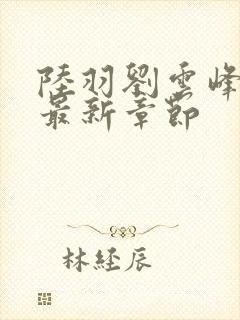 陸羽劉雲峰
最新章節
林經辰